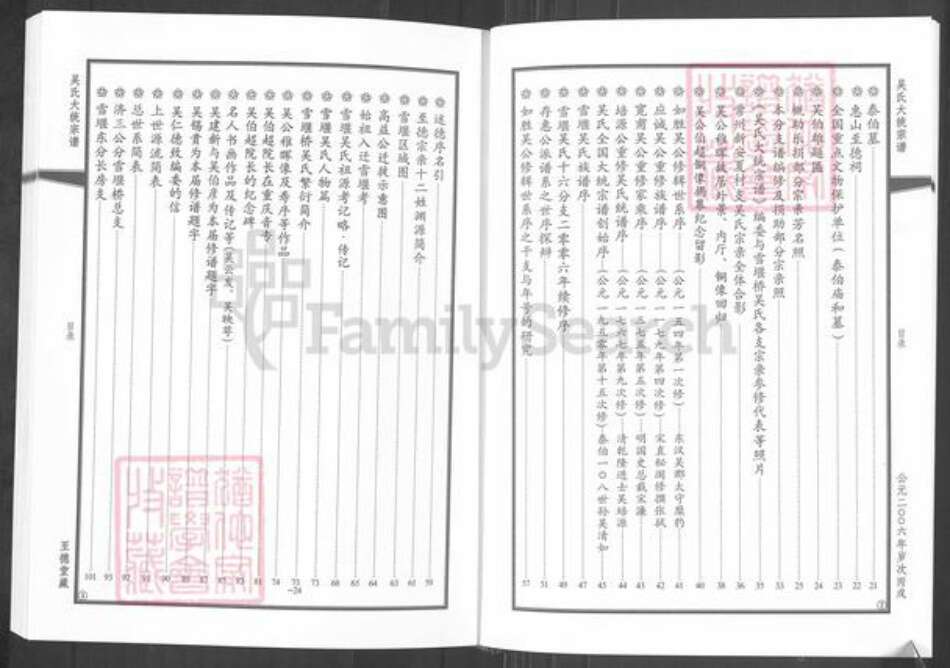 吴氏大统宗谱
目录
公元二〇〇六年岁次丙戌
泰伯墓 21
惠山至德祠 22
全国重点文物保护单位(泰伯庙和墓) 23
吴伯雄题匾 24
赞助乐捐部分宗亲芳名照 25
本分支谱编修及捐助部分宗亲照 33
《吴氏大统宗谱》编委与雪堰桥吴氏各支宗亲参修代表等照片 35
常州新安夏村支吴氏宗亲全体合影 36
吴公稚晖故居外景、内厅、铜像回归 38
吴公伯超铜像揭幕纪念留影 40
如胜吴公修辑世系序(公元一五四年第一次修)东汉吴郡太守糜豹 41
应诚吴公重修族谱序(公元一一七九年第四次修)宋直秘阁修撰张栻 42
宽甫吴公重修家乘序(公元一三七五年第五次修)明国史总裁宋濂 43
培源公重修吴氏统谱序(公元一七六七年第九次修)清乾隆进士吴培源 44
吴氏全国大统宗谱创始序(公元一九五零年第十五次修)泰伯一〇八世孙吴清如 45
雪堰吴氏族谱序 47
雪堰吴氏十六分支二零零六年续修序 49
存惠公派谱系之世序探辩 51
如胜吴公修辑世系序之干支与年号的研究 57
述德序名引 59
至德宗亲十二姓渊源简介 61
雪堰区域图 63
高益公迁救示意图 64
始祖入迁雪堰考 65
雪堰吴氏祖源考记略·传记 68
雪堰吴氏人物篇 73
雪堰桥吴氏繁衍简介 73—24
吴公稚晖像及寿序等作品 74
吴伯超院长在重庆青专 81
吴伯超院长的纪念碑
名人书画作品及传记等(吴公发、吴映荨)
吴建新与吴伯彦为本届修谱题字
吴锡贵为本届修谱题字
吴仁德致编委的信 90
上世源流简表 91
总世系简表 92
济三公分雪堰桥总支 93
雪堰东分长房支 101
吴氏大统宗谱
目录
至德堂藏